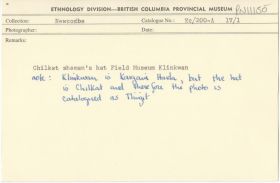 ETHNOLOGY DIVISION—BRITISH COLUMBIA PROVINCIAL MUSEUM PN11155
Collector: Newcombe Catalogue No.: 17/1
Photographer: Date:
Remarks:
Chilkat shaman's hat Field Museum Klinkwan
note: Klinkwan is Kaigani Haida, but the hat
is Chilkat and therefore the photo is
catalogued as Tlingit